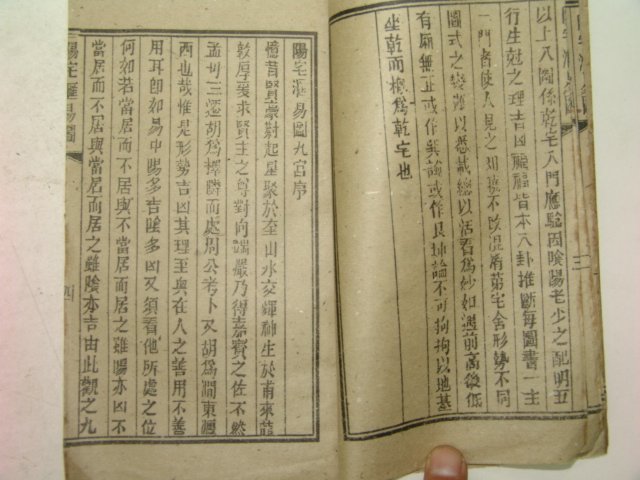 以上八圖係乾宅八門應驗因陰陽老少之配明五
行生尅之理吉凶禍福皆本八卦推斷每圖書一主
一門者使人見之如掌不以混淆第宅舍形勢不同
圖式之難以悉載總以活看為妙如遇前高後低
有厨無正或作巽論或作艮坤論不可拘拘以地基
坐乾而概為乾宅也
三
陽宅滙易圖九宮序
憶昔賢豪蔚起星聚於奎山水交輝神生於甫來龍
敦厚要求賢主之尊對向端嚴乃得嘉賓之佐不然
孟母三遷胡為擇隣而處周公考卜又胡為澗東瀍
西也哉惟是形勢吉凶其理至與在人之善用不善
用耳即如易中陽多吉陰多凶又須看他所處之位
何如若當居而不居與不當居而居之雖陽亦凶不
當居而不居與當居而居之雖陰亦吉由此觀之九
陽宅滙易圖
四